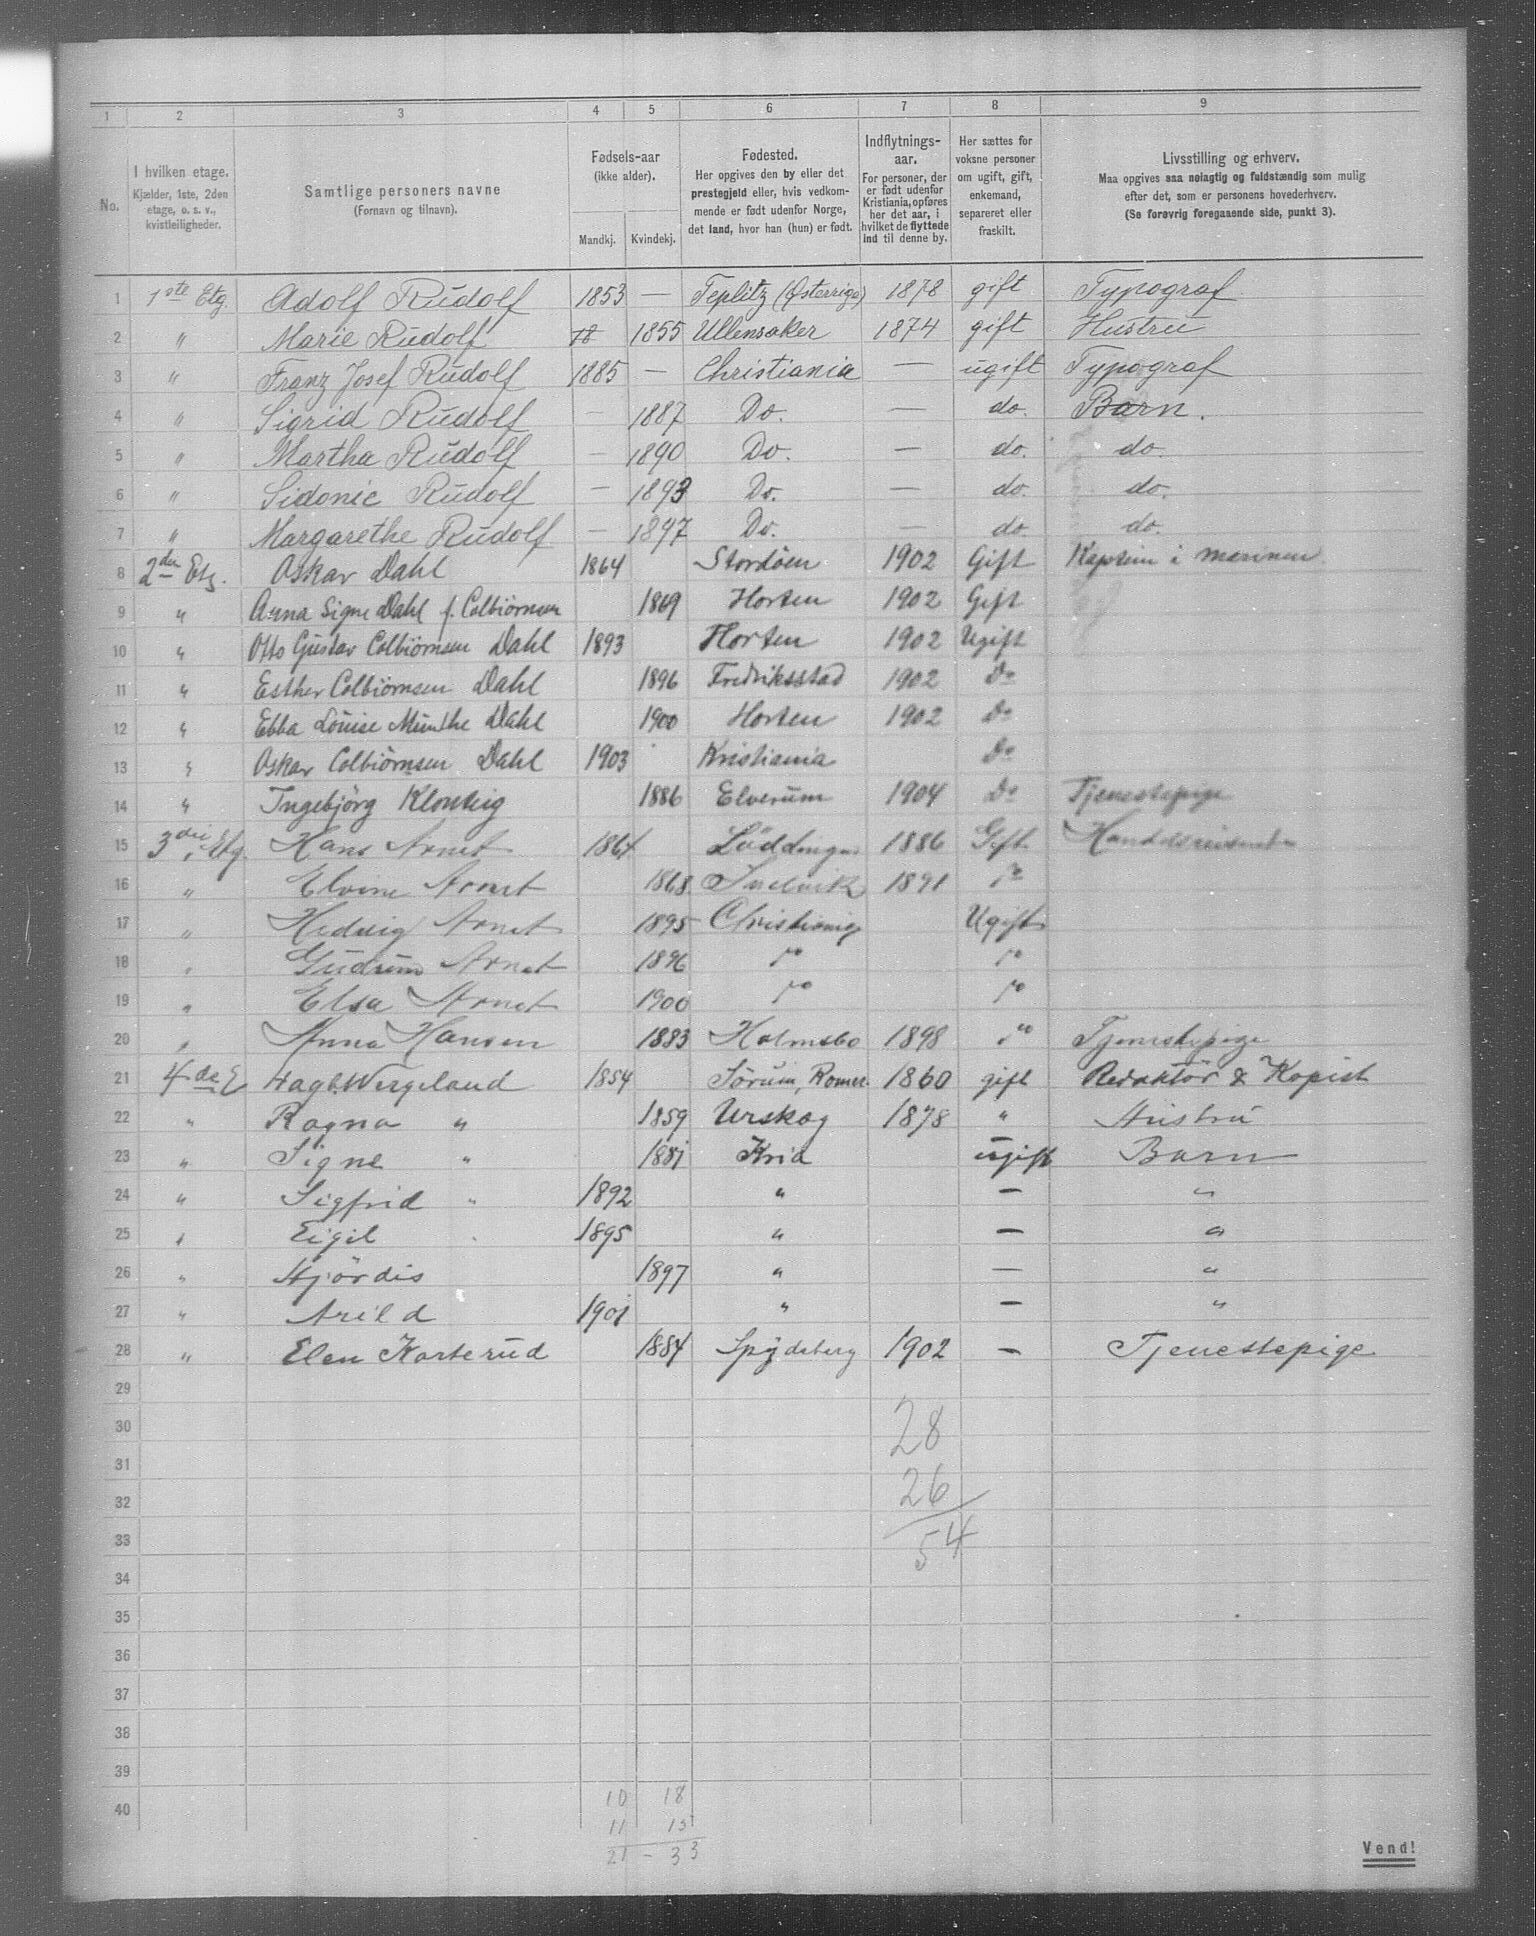 1 2 3 4 5 6 7 8 9
No.
I hvilken etage.
Kjælder, 1ste, 2den
etage, o. s. v.,
kvistleiligheder.
Samtlige personers navne
(Fornavn og tilnavn).
Fødsels-aar
(ikke alder).
Mandkj. Kvindekj.
Fødested.
Her opgives den by eller det
prestegjeld eller, hvis vedkom-
mende er født udenfor Norge,
det land, hvor han (hun) er født.
Indflytnings-
aar.
For personer, der
er født udenfor
Kristiania, opføres
her det aar, i
hvilket de flyttede
ind til denne by.
Her sættes for
voksne personer
om ugift, gift,
enkemand,
separeret eller
fraskilt.
Livsstilling og erhverv.
Maa opgives saa nøiagtig og fuldstændig som mulig
efter det, som er personens hovederhverv.
(Se forøvrig foregaaende side, punkt 3).
1 1ste Etg. Adolf Rudolf 1853 — Teplitz (Østerrige) 1878 gift Typograf
2 " Marie Rudolf 18 1855 Ullensaker 1874 gift Hustru
3 " Franz Josef Rudolf 1885 — Christiania — ugift Typograf
4 " Sigrid Rudolf — 1887 Do. — do. Barn.
5 " Martha Rudolf — 1890 Do. — do. do.
6 " Sidonie Rudolf — 1893 Do. — do. do.
7 " Margarethe Rudolf — 1897 Do. — do. do.
8 2den Etg. Oskar Dahl 1864 Stordöen 1902 Gift Kaptein i marinen
9 " Anna Signe Dahl f. Colbiörnsen 1869 Horten 1902 Gift
10 " Otto Gustav Colbiörnsen Dahl 1893 Horten 1902 Ugift
11 " Esther Colbiörnsen Dahl 1896 Fredriksstad 1902 Do
12 " Ebba Louise Munthe Dahl 1900 Horten 1902 Do
13 " Oskar Colbiörnsen Dahl 1903 Kristiania Do
14 " Ingebjörg 1886 Elverum 1904 Do Tjenestepige
15 3die Etg. Hans Arnet 1864 Löddingen 1886 Gift Handelsreisende
16 " Elvine Arnet 1868 Svelvik 1891 do
17 " Hedvig Arnet 1895 Christiania Ugift
18 " Gudrun Arnet 1896 do do
19 " Elsa Arnet 1900 do do
20 " Anna Hansen 1883 Holmsbo 1898 do Tjenestepige
21 4de E Hagb. Wergeland 1854 Sørum, Romer. 1860 gift Redaktör & Kopist
22 " Ragna " 1859 Urskog 1878 " Hustru
23 " Signe " 1881 Kria ugift Barn
24 " Sigfrid " 1892 " — "
25 " Eigil 1895 " — "
26 " Hjördis 1897 " — "
27 " Arild 1901 " — "
28 " Elen Karterud 1884 Spydeberg 1902 — Tjenestepige
29
30 28
31
32 26
33 54
34
35
36
37
38
39
40 10 18
11 15
21 - 33
Vend!